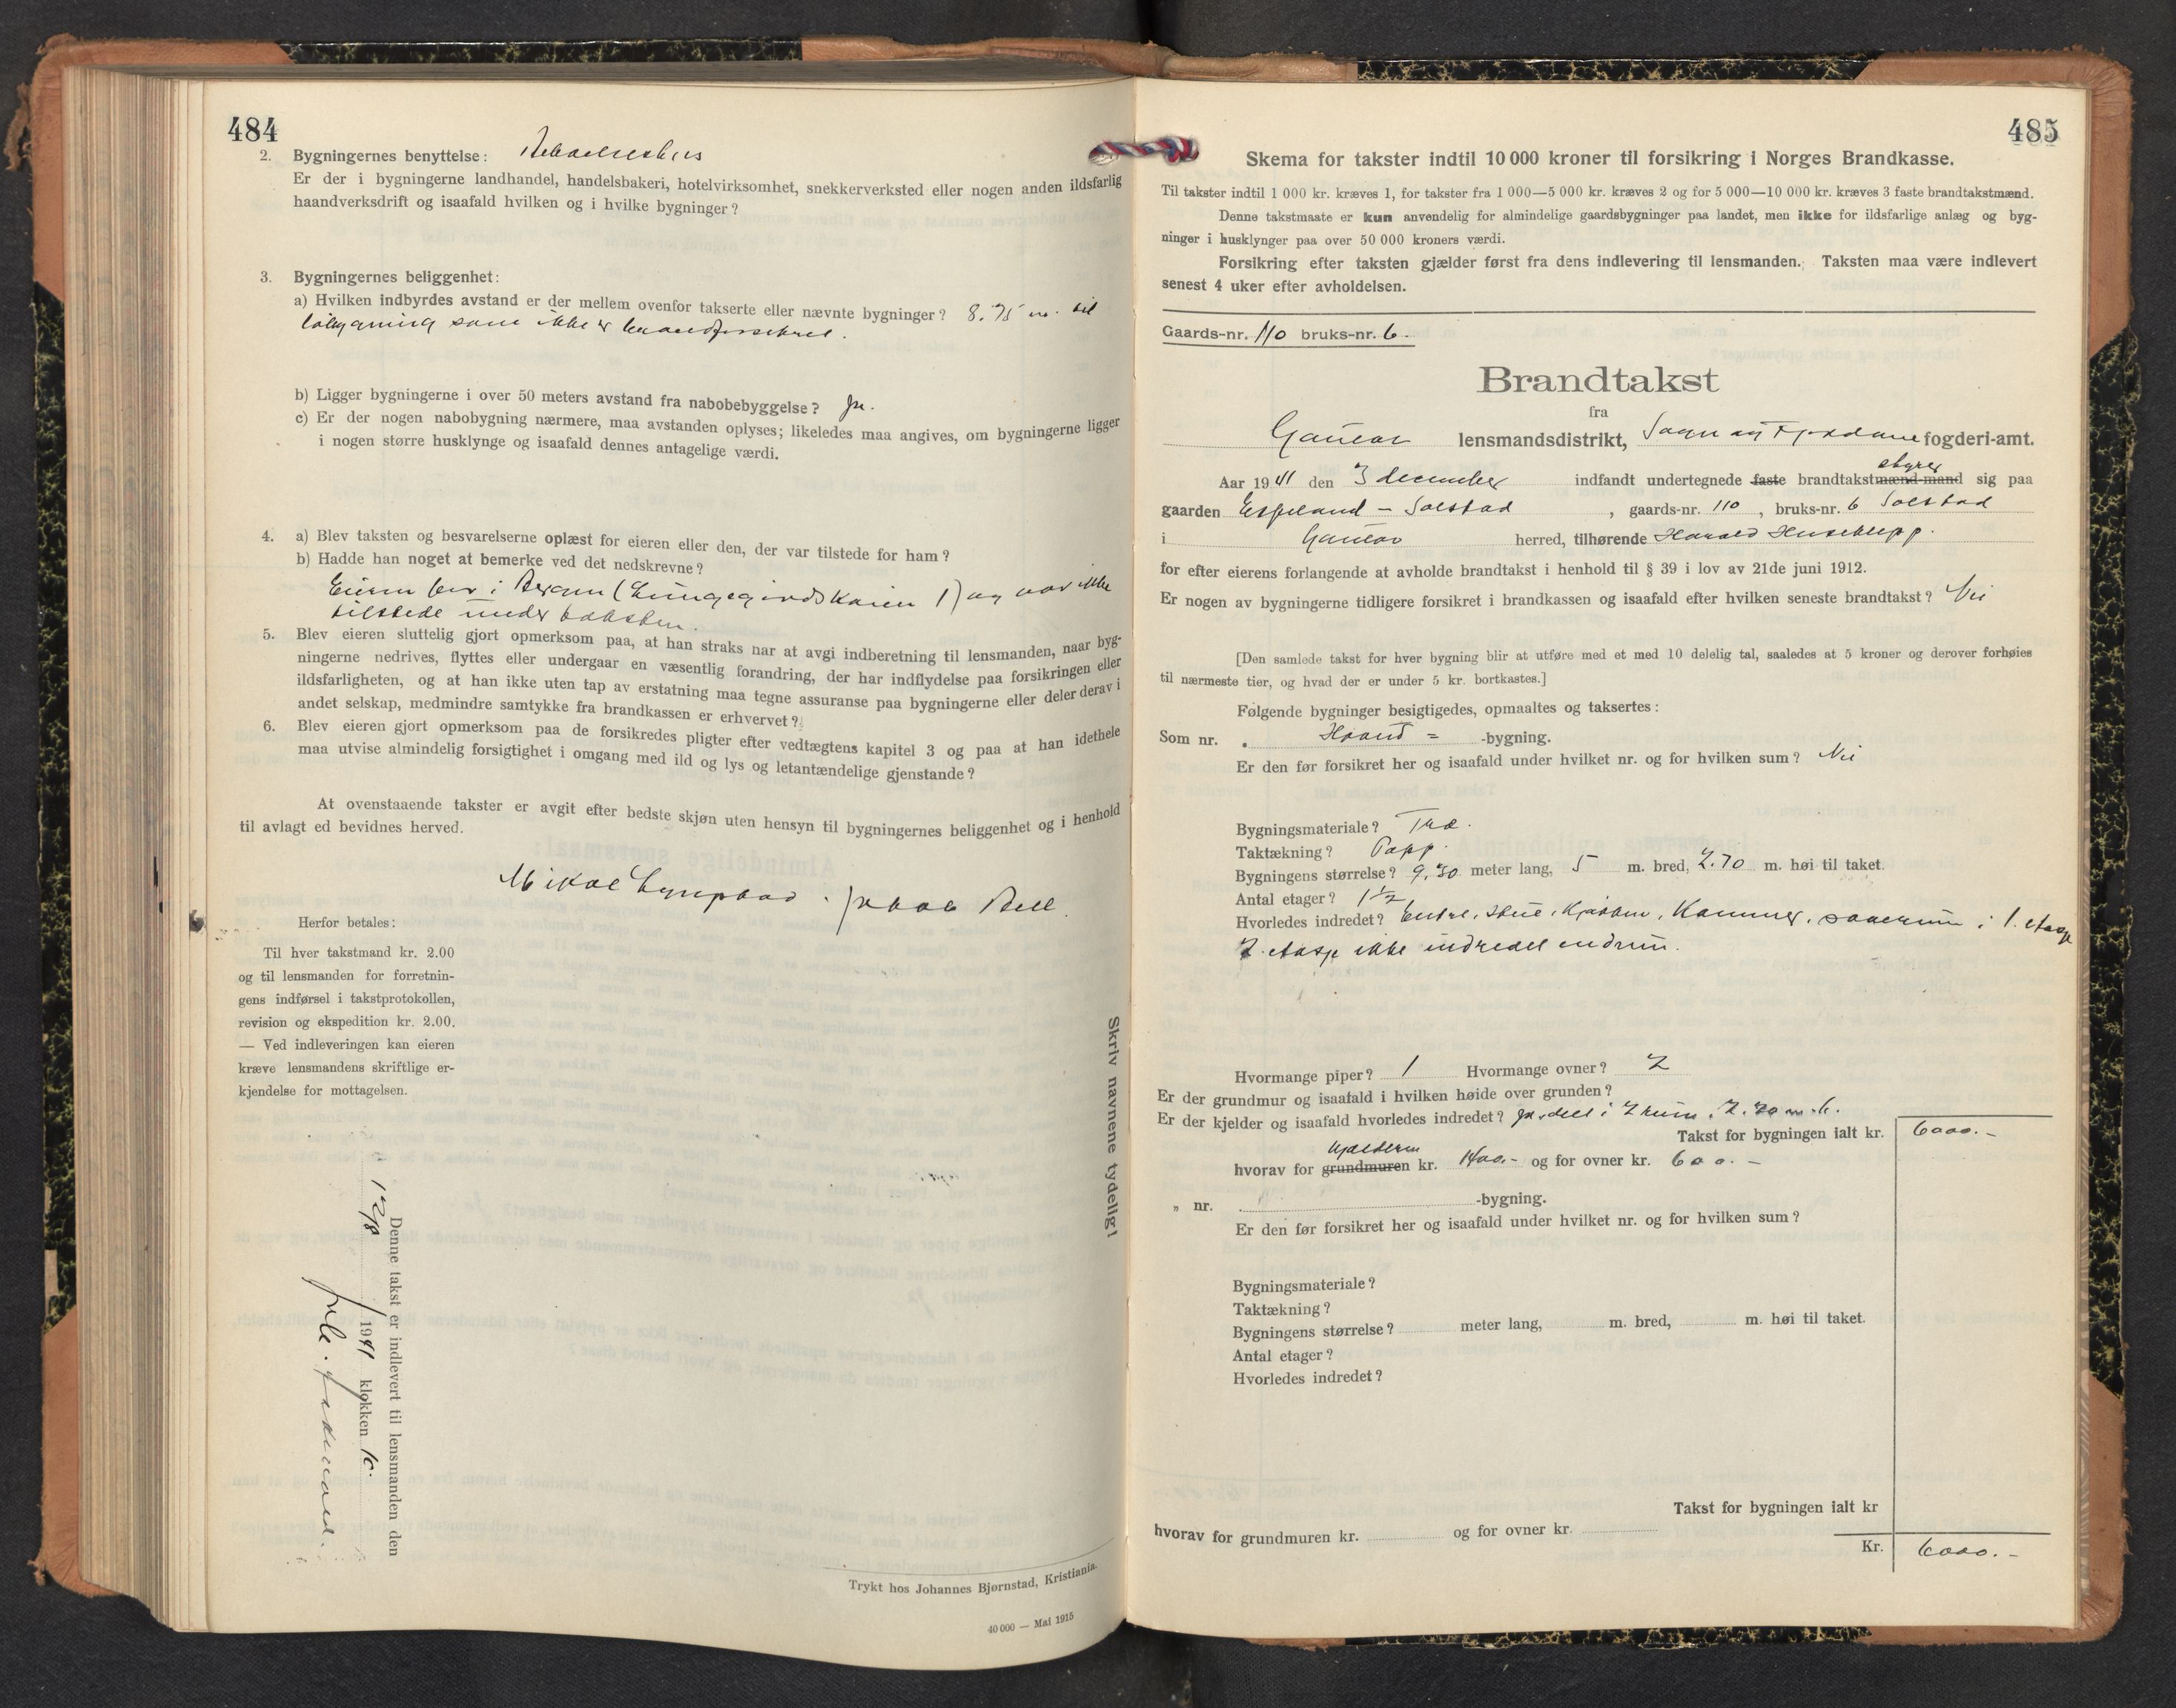 484
2. Bygningernes benyttelse: Beboelseshus
Er der i bygningerne landhandel, handelsbakeri, hotelvirksomhet, snekkerverksted eller nogen anden ildsfarlig
haandverksdrift og isaafald hvilken og i hvilke bygninger?
3. Bygningernes beliggenhet:
a) Hvilken indbyrdes avstand er der mellem ovenfor takserte eller nævnte bygninger? 8.75 m. til
løbygning som ikke er brandforsikret.
b) Ligger bygningerne i over 50 meters avstand fra nabobebyggelse? ja.
c) Er der nogen nabobygning nærmere, maa avstanden oplyses; likeledes maa angives, om bygningerne ligger
i nogen større husklynge og isaafald dennes antagelige værdi.
4. a) Blev taksten og besvarelserne oplæst for eieren eller den, der var tilstede for ham?
b) Hadde han noget at bemerke ved det nedskrevne?
Eieren bor i Bergen (Lungegårdskaien 1) og var ikke
tilstede under taksten.
5. Blev eieren sluttelig gjort opmerksom paa, at han straks har at avgi indberetning til lensmanden, naar byg-
ningerne nedrives, flyttes eller undergaar en væsentlig forandring, der har indflydelse paa forsikringen eller
ildsfarligheten, og at han ikke uten tap av erstatning maa tegne assuranse paa bygningerne eller deler derav i
andet selskap, medmindre samtykke fra brandkassen er erhvervet?
6. Blev eieren gjort opmerksom paa de forsikredes pligter efter vedtægtens kapitel 3 og paa at han idethele
maa utvise almindelig forsigtighet i omgang med ild og lys og letantændelige gjenstande?
At ovenstaaende takster er avgit efter bedste skjøn uten hensyn til bygningernes beliggenhet og i henhold
til avlagt ed bevidnes herved.
Mikal Jakob Bell.
Herfor betales:
Til hver takstmand kr. 2.00
og til lensmanden for forretnin-
gens indførsel i takstprotokollen,
revision og ekspedition kr. 2.00.
— Ved indleveringen kan eieren
kræve lensmandens skriftlige er-
kjendelse for mottagelsen.
Skriv navnene tydelig!
Denne takst er indlevert til lensmanden den
12/8 1941 klokken 10.
Trykt hos Johannes Bjørnstad, Kristiania.
40 000 — Mai 1915
485
Skema for takster indtil 10 000 kroner til forsikring i Norges Brandkasse.
Til takster indtil 1 000 kr. kræves 1, for takster fra 1 000—5 000 kr. kræves 2 og for 5 000—10 000 kr. kræves 3 faste brandtakstmænd.
Denne takstmaate er kun anvendelig for almindelige gaardsbygninger paa landet, men ikke for ildsfarlige anlæg og byg-
ninger i husklynger paa over 50 000 kroners værdi.
Forsikring efter taksten gjælder først fra dens indlevering til lensmanden. Taksten maa være indlevert
senest 4 uker efter avholdelsen.
Gaards-nr. 110 bruks-nr. 6.
Brandtakst
fra
Gaular lensmandsdistrikt, Sogn og Fjordane fogderi-amt.
styrer
Aar 1941 den 3 december indfandt undertegnede faste brandtakstmænd-mand sig paa
gaarden Espeland – Solstad, gaards-nr. 110, bruks-nr. 6 Solstad
i Gaular herred, tilhørende Harald Huseklepp.
for efter eierens forlangende at avholde brandtakst i henhold til § 39 i lov av 21de juni 1912.
Er nogen av bygningerne tidligere forsikret i brandkassen og isaafald efter hvilken seneste brandtakst? Nei
[Den samlede takst for hver bygning blir at utføre med et med 10 delelig tal, saaledes at 5 kroner og derover forhøies
til nærmeste tier, og hvad der er under 5 kr. bortkastes.]
Følgende bygninger besigtigedes, opmaaltes og taksertes:
Som nr. Haand = -bygning.
Er den før forsikret her og isaafald under hvilket nr. og for hvilken sum? Nei
Bygningsmateriale? Træ.
Taktækning? Papp.
Bygningens størrelse? 9.30 meter lang, 5 m. bred, 2.70 m. høi til taket.
Antal etager? 1 1/2
Hvorledes indredet? Entre, Stue, Kjøkken, Kammer, soverum i 1. etasje
2. etasje ikke indredet endnu.
Hvormange piper? 1 Hvormange ovner? 2
Er der grundmur og isaafald i hvilken høide over grunden?
Er der kjelder og isaafald hvorledes indredet? ja, delt i 2 rum. 2.20 m. h.
Takst for bygningen ialt kr. 6000.-
kjelderen
hvorav for grundmuren kr. 1400.- og for ovner kr. 600.-
„ nr. -bygning.
Er den før forsikret her og isaafald under hvilket nr. og for hvilken sum?
Bygningsmateriale?
Taktækning?
Bygningens størrelse? meter lang, m. bred, m. høi til taket.
Antal etager?
Hvorledes indredet?
Takst for bygningen ialt kr
hvorav for grundmuren kr. og for ovner kr.
Kr. 6000.-